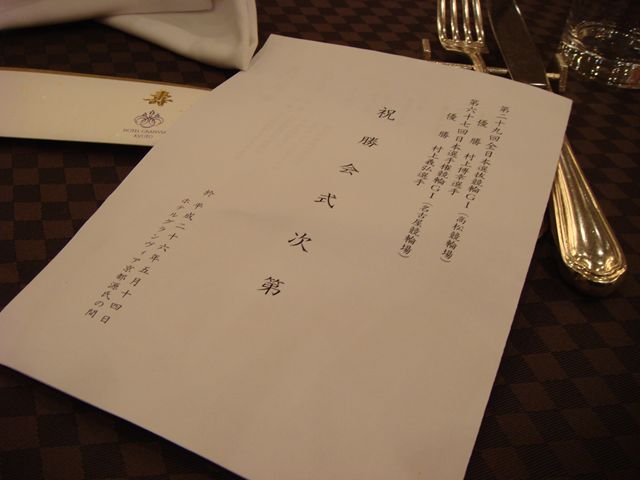 第二十九回全日本選抜競輪GI(高松競輪場)
優勝 村上博幸選手
第六十七回日本選手権競輪GI(名古屋競輪場)
優勝 村上義弘選手
祝勝会式次第
於 平成二十六年五月十四日
ホテルグランヴィア京都源氏の間
寿
HOTEL GRANVIA
KYOTO